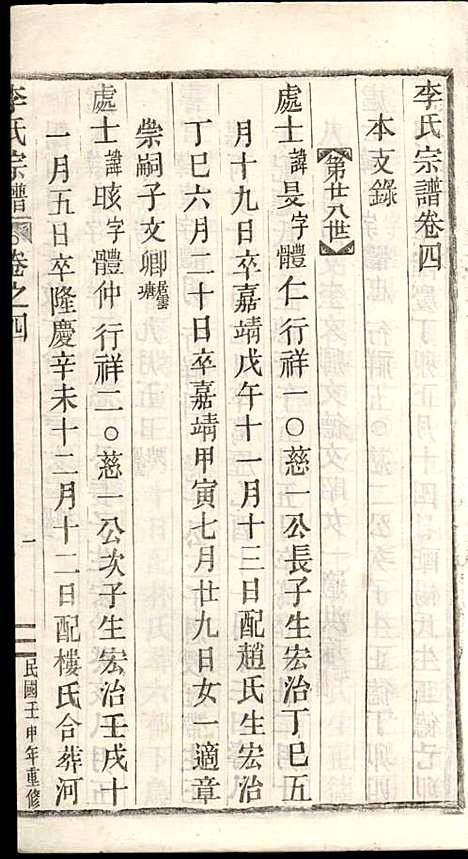 李氏宗譜卷四
本支錄
【第廿八世】
處士諱旻字體仁行祥一〇慈一公長子生宏治丁巳五
月十九日卒嘉靖戊午十一月十三日配趙氏生宏治
丁巳六月二十日卒嘉靖甲寅七月廿九日女一適章
崇嗣子文卿
處士諱晐字體仲行祥二〇慈一公次子生宏治壬戌十
一月五日卒隆慶辛未十二月十二日配樓氏合葬河
李氏宗譜 卷之四 一 民國壬申年重修